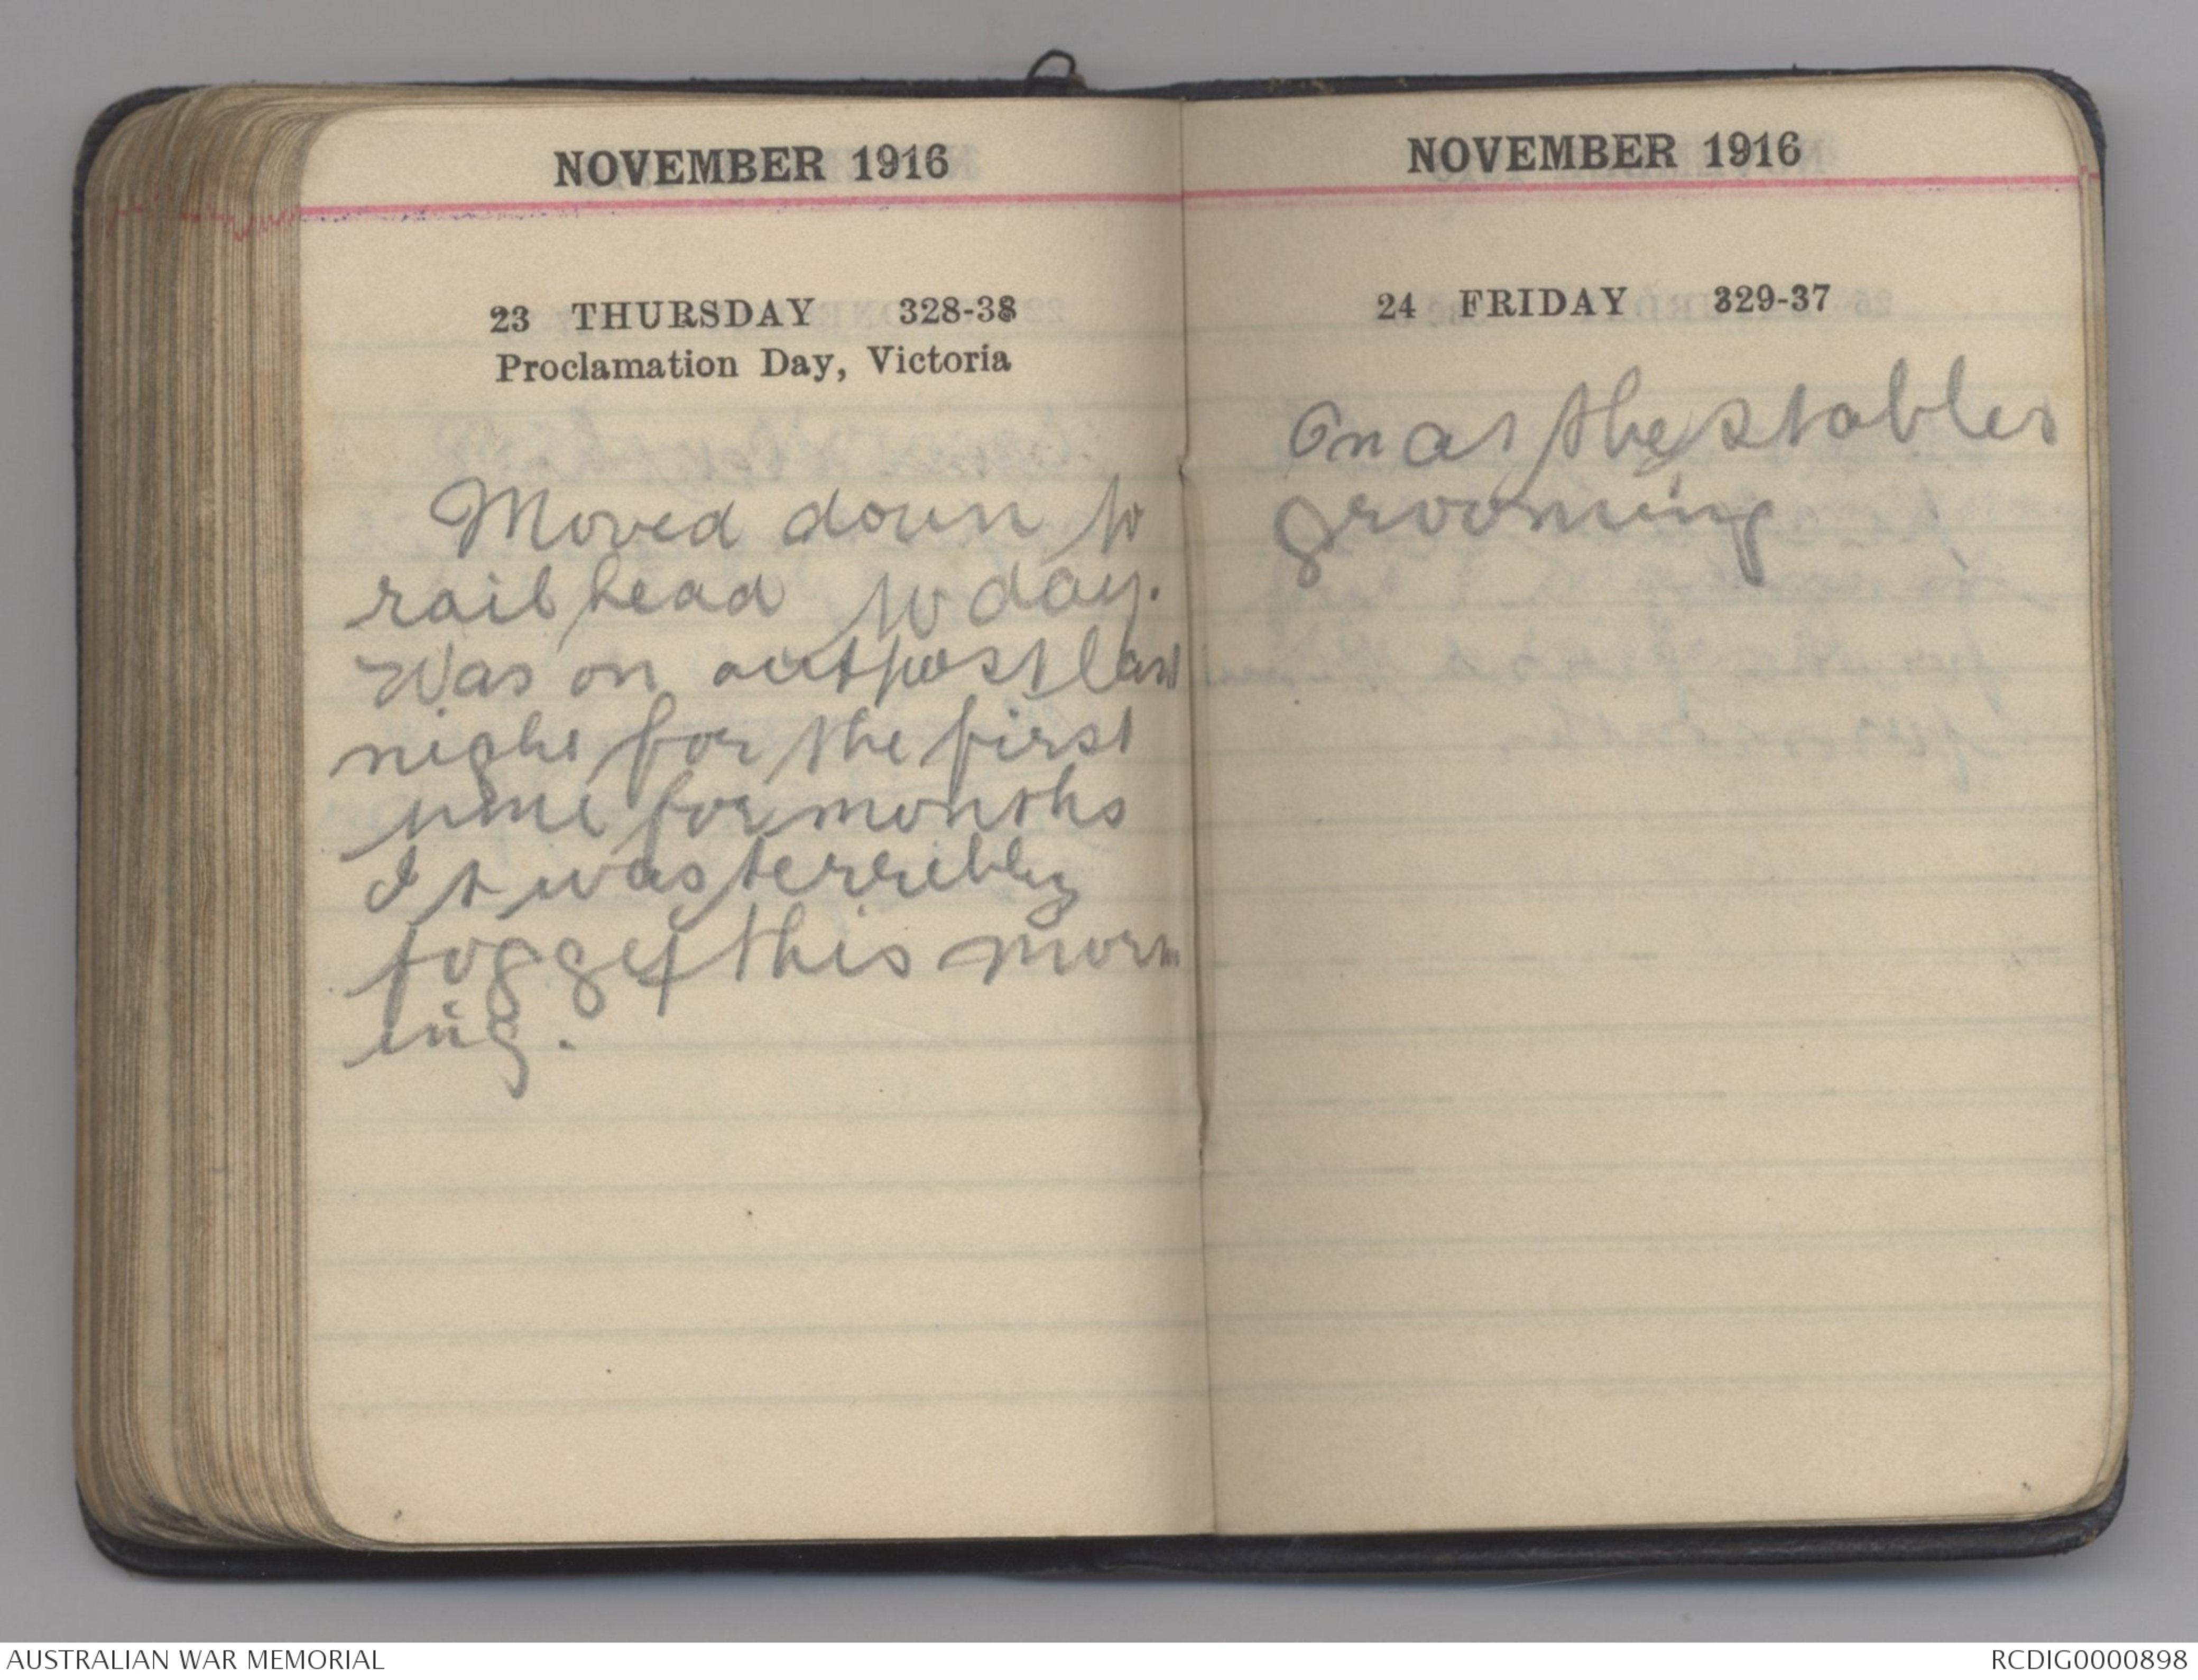 NOVEMBER 1916
23 THURSDAY 328-38
Proclamation Day, Victoria
Moved down to
railhead to day.
Was on outpost last
night for the first
time for months
It was terribly
foggy this morn
ing.
NOVEMBER 1916
24 FRIDAY 329-37
On at the stables
grooming
AUSTRALIAN WAR MEMORIAL
RCDIG0000898